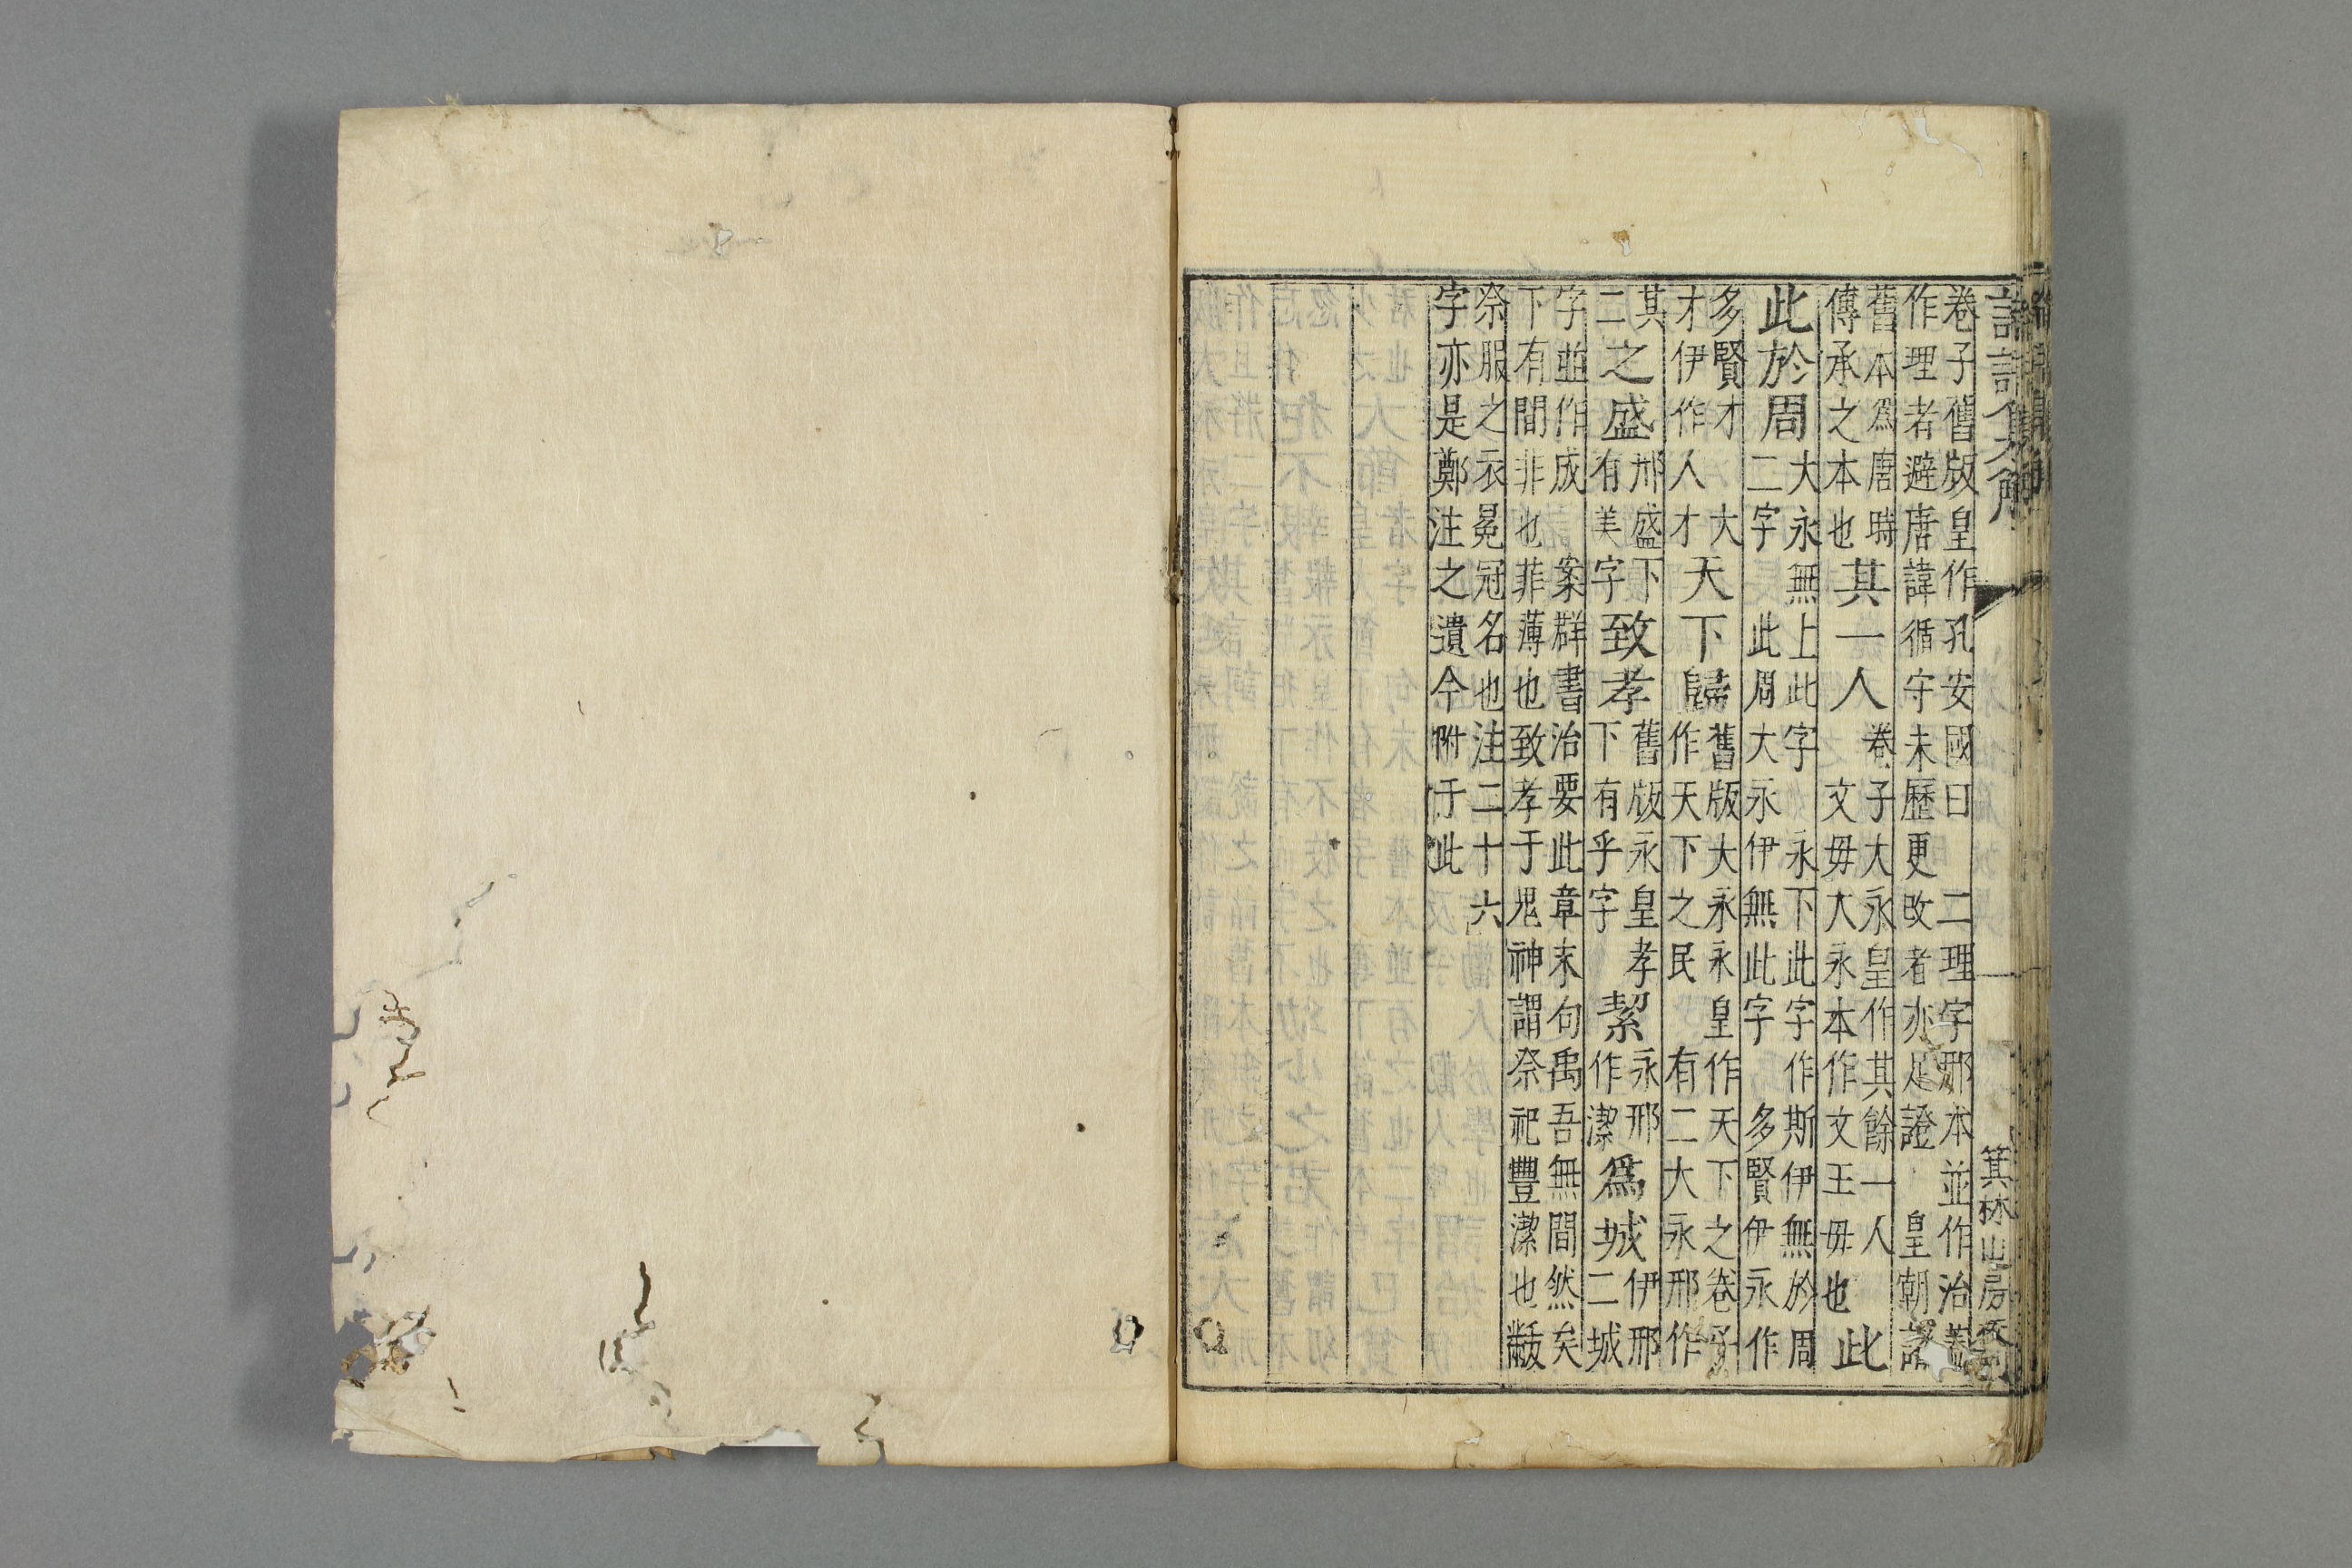 論語集解 箕林山房
卷子舊版皇作孔安國曰 二理字邢本並作治蓋
作理者避唐諱循守未歷更改者亦足證 皇朝諸
舊本爲唐時
傳承之本也
其一人
卷子大永皇作其餘一人
文毋大永本作文王毋也
此
此於周
大永無上此字 永下此字作斯伊無於周
二字 此周大永伊無此字 多賢伊永作
多賢才 大
才伊作人才
天下歸
舊版大永永皇作天下之卷子
作天下之民 有二大永邢作
其
二
之盛
邢盛下
有美字
致孝
舊版永皇孝
下有乎字
絜
永邢
作潔
爲城
伊邢
二城
字並作成 案群書治要此章末句禹吾無間然矣
下有間非也菲薄也致孝于鬼神謂祭祀豐潔也黻
祭服之衣冕冠名也注二十六
字亦是鄭注之遺今附于此